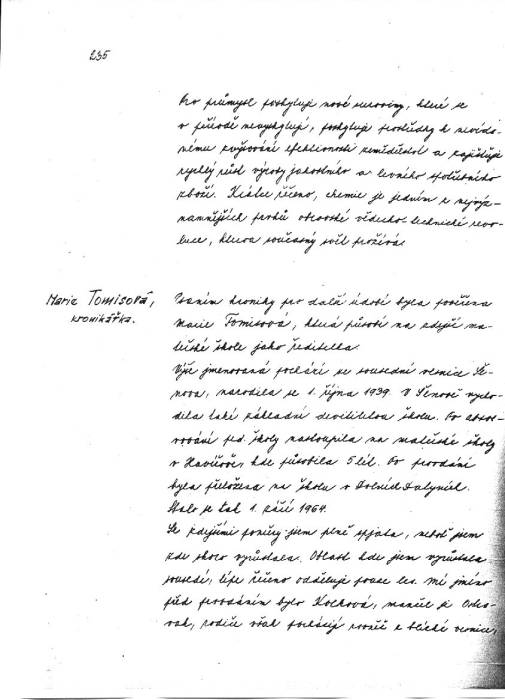 235
Pro průmysl poskytuje nové suroviny, které se
v přírodě nevyskytují, poskytuje prostředky k nevída-
nému zvyšování efektivnosti zemědělství a zajišťuje
rychlý růst výroby jakostního a levného spotřebního
zboží. Krátce řečeno, chemie je jedním z nejvýz-
namnějších prvků obrovské vědecko-technické revo-
luce, kterou současný svět prožívá.
Marie Tomisová,
kronikářka.
Psaním kroniky pro další údobí byla pověřena
Marie Tomisová, která působí na zdejší ma-
teřské škole jako ředitelka.
Výše jmenovaná pochází ze sousední vesnice Še-
nova, narodila se 1. října 1939. V Šenově vycho-
dila také základní devítiletou školu. Po absol-
vování ped. školy nastoupila na mateřské školy
v Havířově, kde působila 5 let. Po provdání
byla přeložena na školu v Dolních Datyních.
Stalo se tak 1. září 1964.
Se zdejšími poměry jsem plně spjata, neboť jsem
zde skoro vyrůstala. Oblast kde jsem vyrůstala
sousedí, lépe řečeno odděluje pouze les. Mé jméno
před provdáním bylo Kočková, manžel je Ostra-
vák, rodiče však pochází rovněž z blízké vesnice,